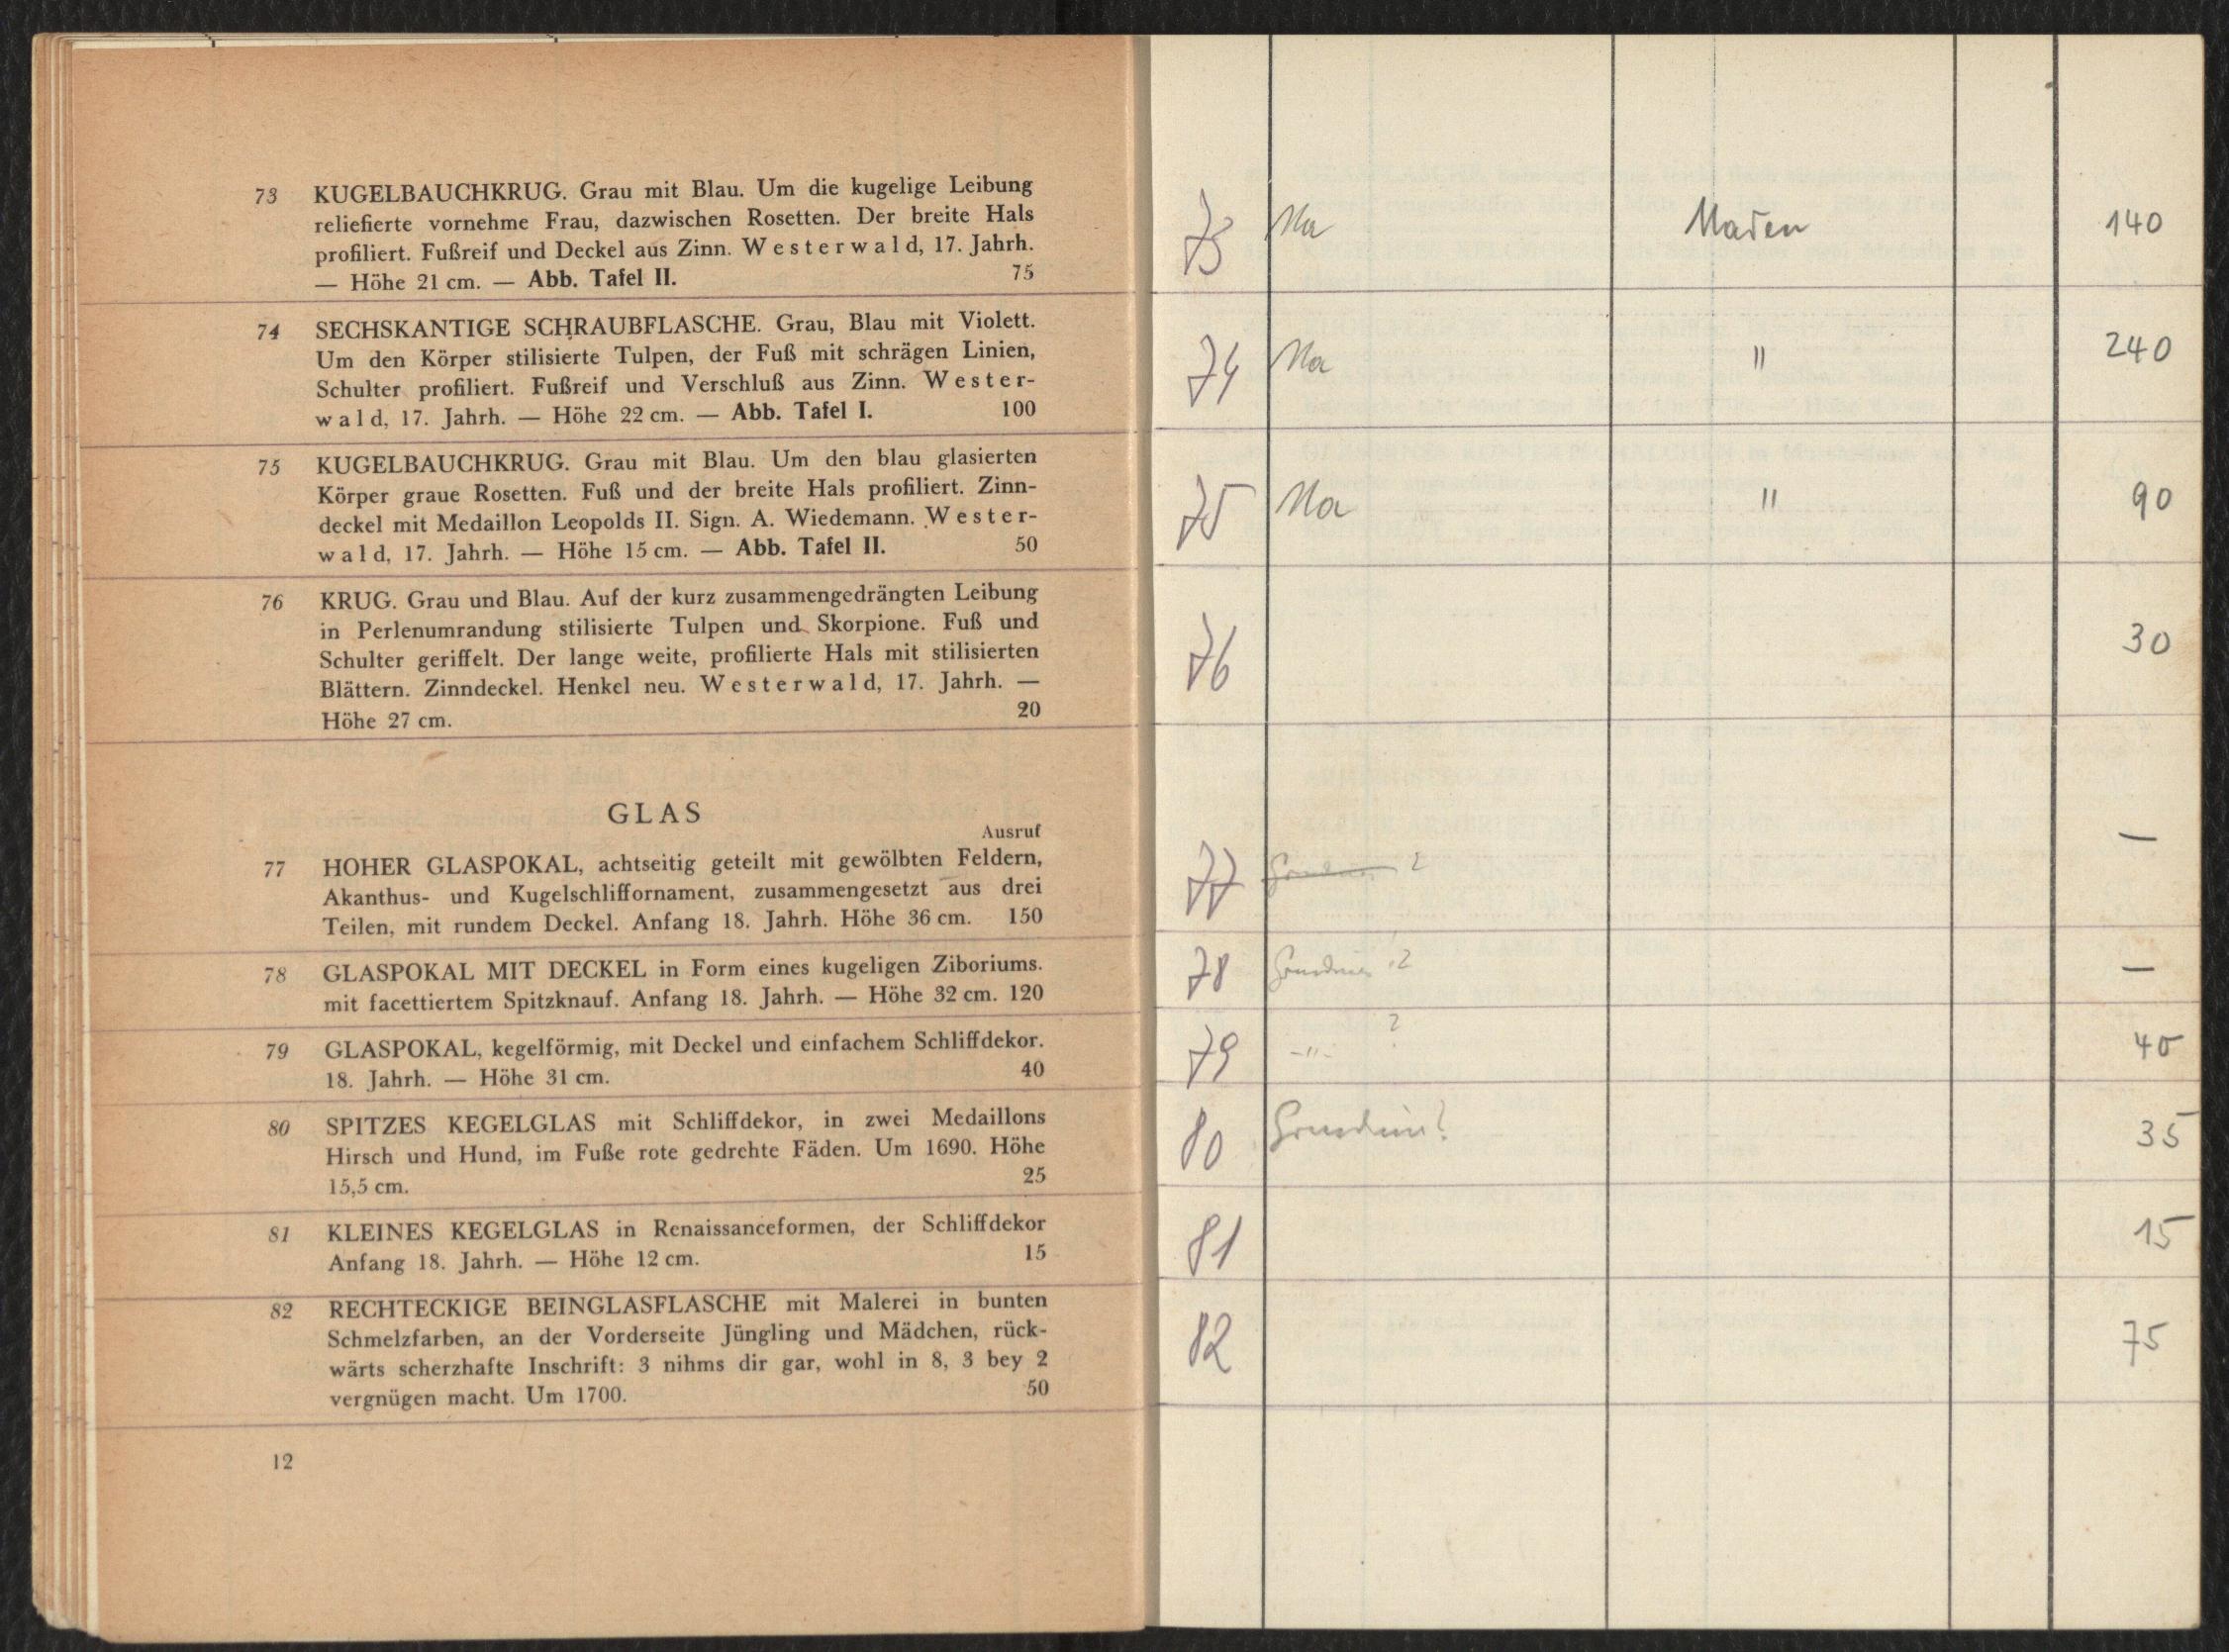 73 KUGELBAUCHKRUG. Grau mit Blau. Um die kugelige Leibung
reliefierte vornehme Frau, dazwischen Rosetten. Der breite Hals
profiliert. Fußreif und Deckel aus Zinn. Westerwald, 17. Jahrh.
— Höhe 21 cm. — Abb. Tafel II. 75
74 SECHSKANTIGE SCHRAUBFLASCHE. Grau, Blau mit Violett.
Um den Körper stilisierte Tulpen, der Fuß mit schrägen Linien,
Schulter profiliert. Fußreif und Verschluß aus Zinn. Wester-
wald, 17. Jahrh. — Höhe 22 cm. — Abb. Tafel I. 100
75 KUGELBAUCHKRUG. Grau mit Blau. Um den blau glasierten
Körper graue Rosetten. Fuß und der breite Hals profiliert. Zinn-
deckel mit Medaillon Leopolds II. Sign. A. Wiedemann. Wester-
wald, 17. Jahrh. — Höhe 15 cm. — Abb. Tafel II. 50
76 KRUG. Grau und Blau. Auf der kurz zusammengedrängten Leibung
in Perlenumrandung stilisierte Tulpen und Skorpione. Fuß und
Schulter geriffelt. Der lange weite, profilierte Hals mit stilisierten
Blättern. Zinndeckel. Henkel neu. Westerwald, 17. Jahrh. —
Höhe 27 cm. 20
GLAS
Ausruf
77 HOHER GLASPOKAL, achtseitig geteilt mit gewölbten Feldern,
Akanthus- und Kugelschliffornament, zusammengesetzt aus drei
Teilen, mit rundem Deckel. Anfang 18. Jahrh. Höhe 36 cm. 150
78 GLASPOKAL MIT DECKEL in Form eines kugeligen Ziboriums.
mit facettiertem Spitzknauf. Anfang 18. Jahrh. — Höhe 32 cm. 120
79 GLASPOKAL, kegelförmig, mit Deckel und einfachem Schliffdekor.
18. Jahrh. — Höhe 31 cm. 40
80 SPITZES KEGELGLAS mit Schliffdekor, in zwei Medaillons
Hirsch und Hund, im Fuße rote gedrehte Fäden. Um 1690. Höhe
15,5 cm. 25
81 KLEINES KEGELGLAS in Renaissanceformen, der Schliffdekor
Anfang 18. Jahrh. — Höhe 12 cm. 15
82 RECHTECKIGE BEINGLASFLASCHE mit Malerei in bunten
Schmelzfarben, an der Vorderseite Jüngling und Mädchen, rück-
wärts scherzhafte Inschrift: 3 nihms dir gar, wohl in 8, 3 bey 2
vergnügen macht. Um 1700. 50
12
73 Ma 140
74 Ma " 240
75 Ma " 90
76 30
77 ? —
78 ? —
79 -"- ? 40
80 35
81 15
82 75